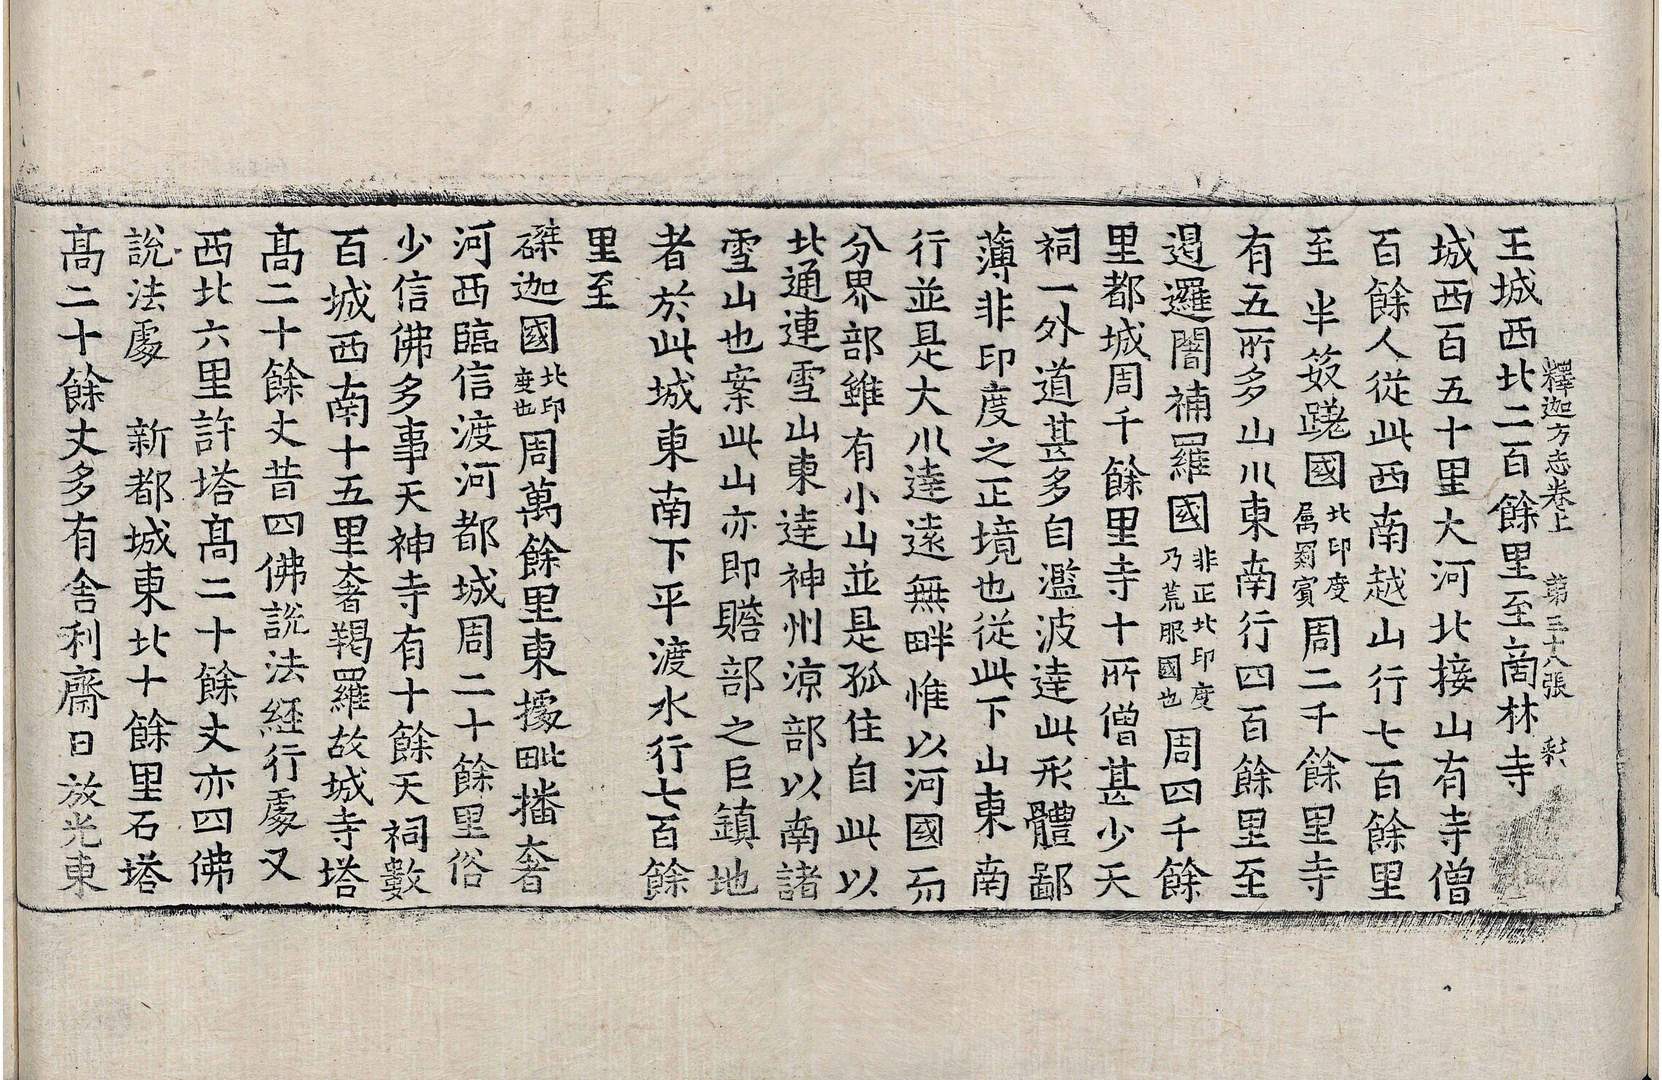 釋迦方志卷上　第三十八張　彩
王城西北二百餘里至啇林寺
城西百五十里大河北接山有寺僧
百餘人從此西南越山行七百餘里
至半笯蹉國北印度属罽賓周二千餘里寺
有五所多山川東南行四百餘里至
遏邏闍補羅國非正北印度乃荒服國也周四千餘
里都城周千餘里寺十所僧甚少天
祠一外道甚多自濫波達此形體鄙
薄非印度之正境也從此下山東南
行並是大川達遠無畔惟以河國而
分界部雖有小山並是孤住自此以
北通連雪山東達神州涼部以南諸
雪山也案此山亦即贍部之巨鎮地
者於此城東南下平渡水行七百餘
里至
磔迦國北印度也周萬餘里東據毗播奢
河西臨信渡河都城周二十餘里俗
少信佛多事天神寺有十餘天祠數
百城西南十五里奢羯羅故城寺塔
髙二十餘丈昔四佛說法經行處又
西北六里許塔髙二十餘丈亦四佛
說法處　新都城東北十餘里石塔
髙二十餘丈多有舎利齋日放光東